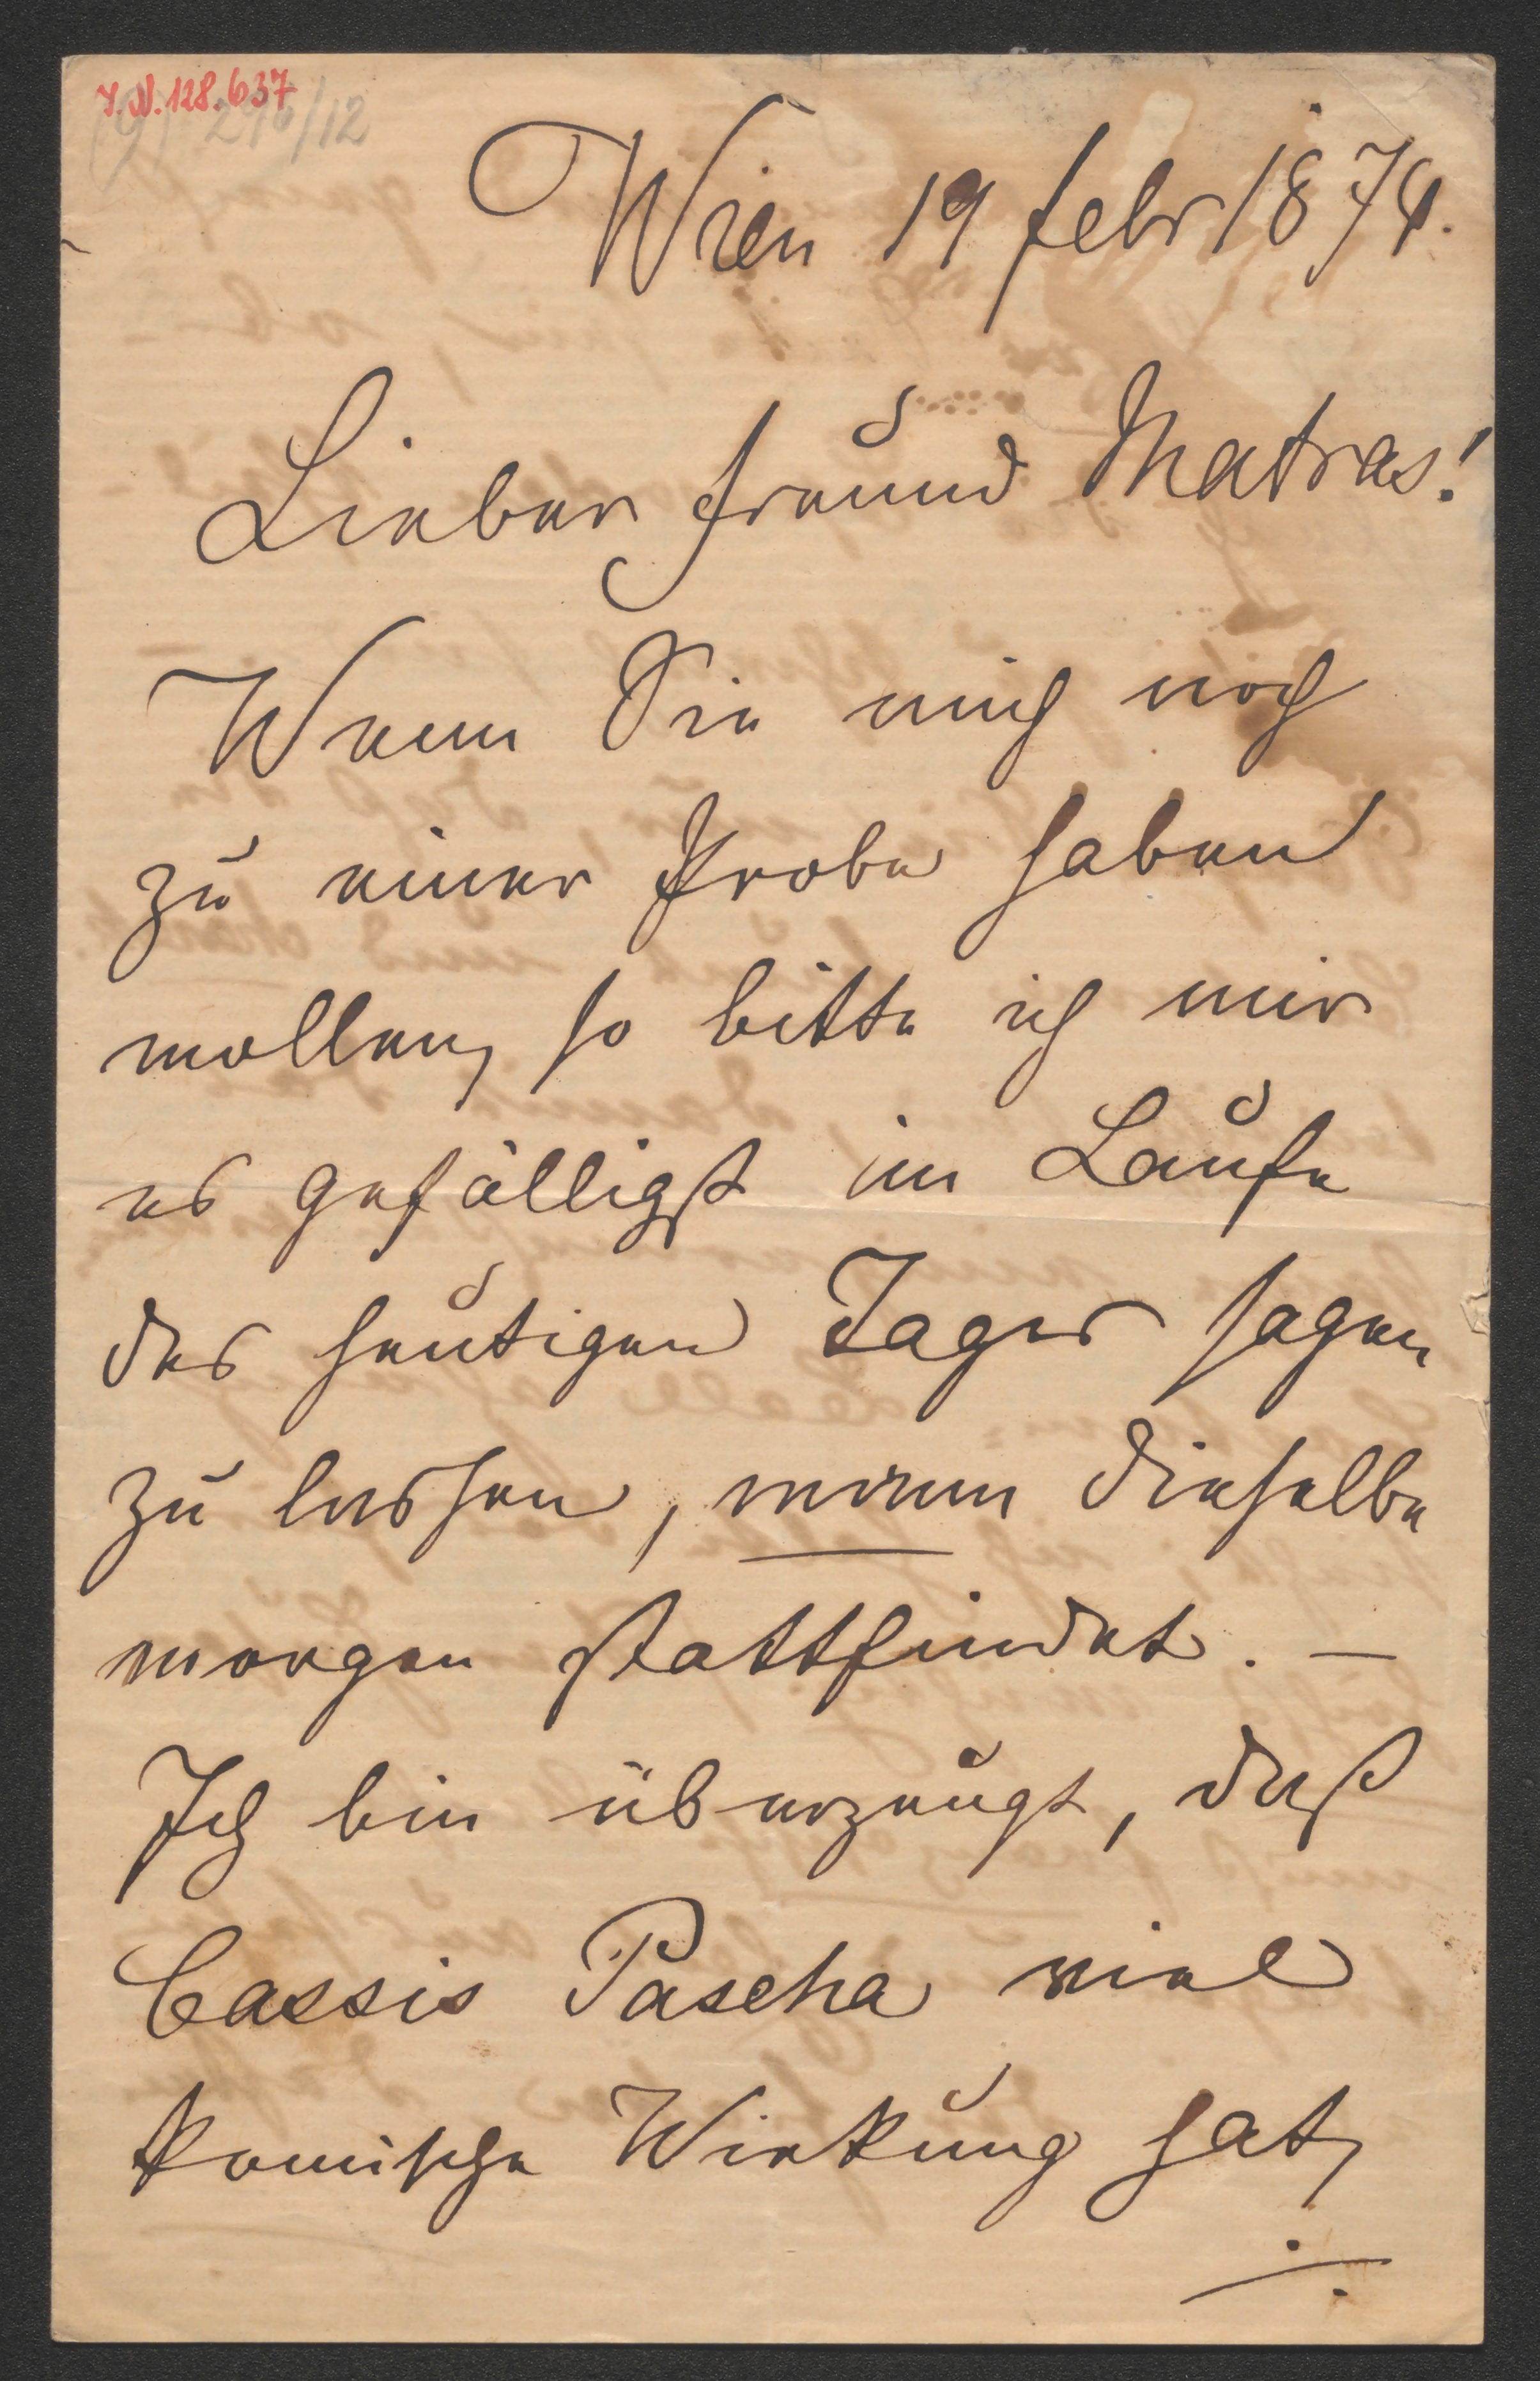 I.N.128.637
Wien 19 febr 1874.
Lieber Freund Matras!
Wenn Sie mich noch
zu einer Probe haben
wollen, so bitte ich mir
es gefälligst im Laufe
des heutigen Tages sagen
zu lassen, wann dieselbe
morgen stattfindet. —
Ich bin überzeugt, daß
Cassis Pascha viel
komische Wirkung hat,